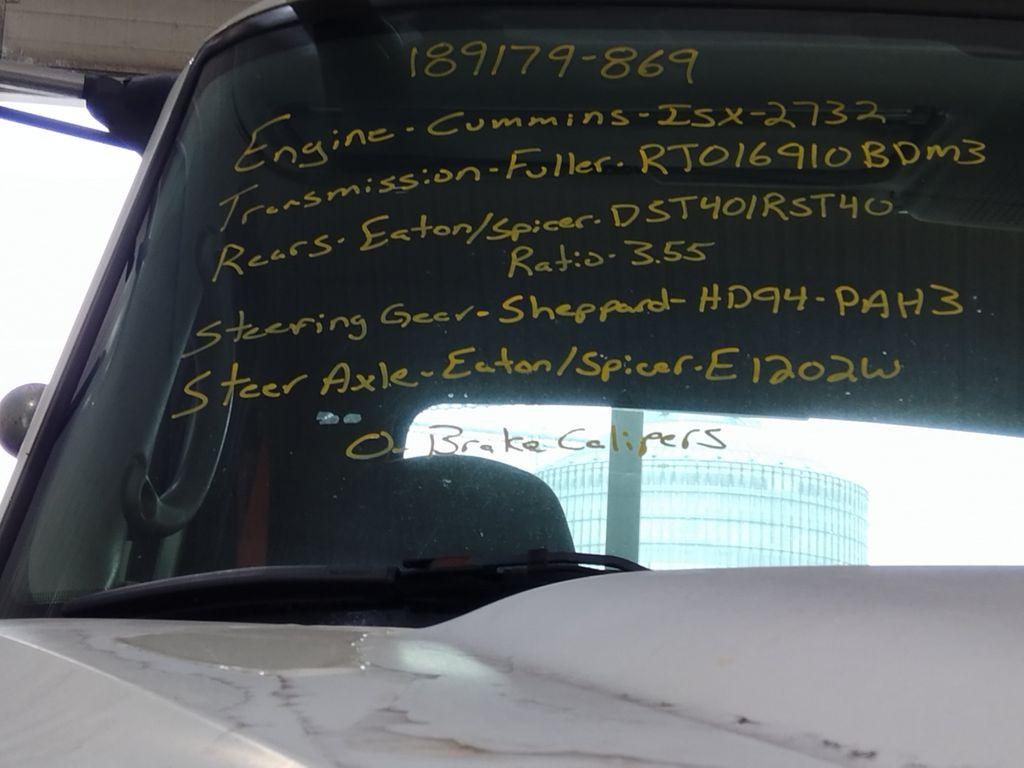 189179-869
Engine - Cummins - ISX - 2732
Transmission - Fuller - RTO16910BDM3
Rears - Eaton/Spicer - DST401RST40
Ratio - 3.55
Steering Gear - Sheppard - HD94 - PAH3
Steer Axle - Eaton/Spicer - E1202W
0 - Brake Calipers